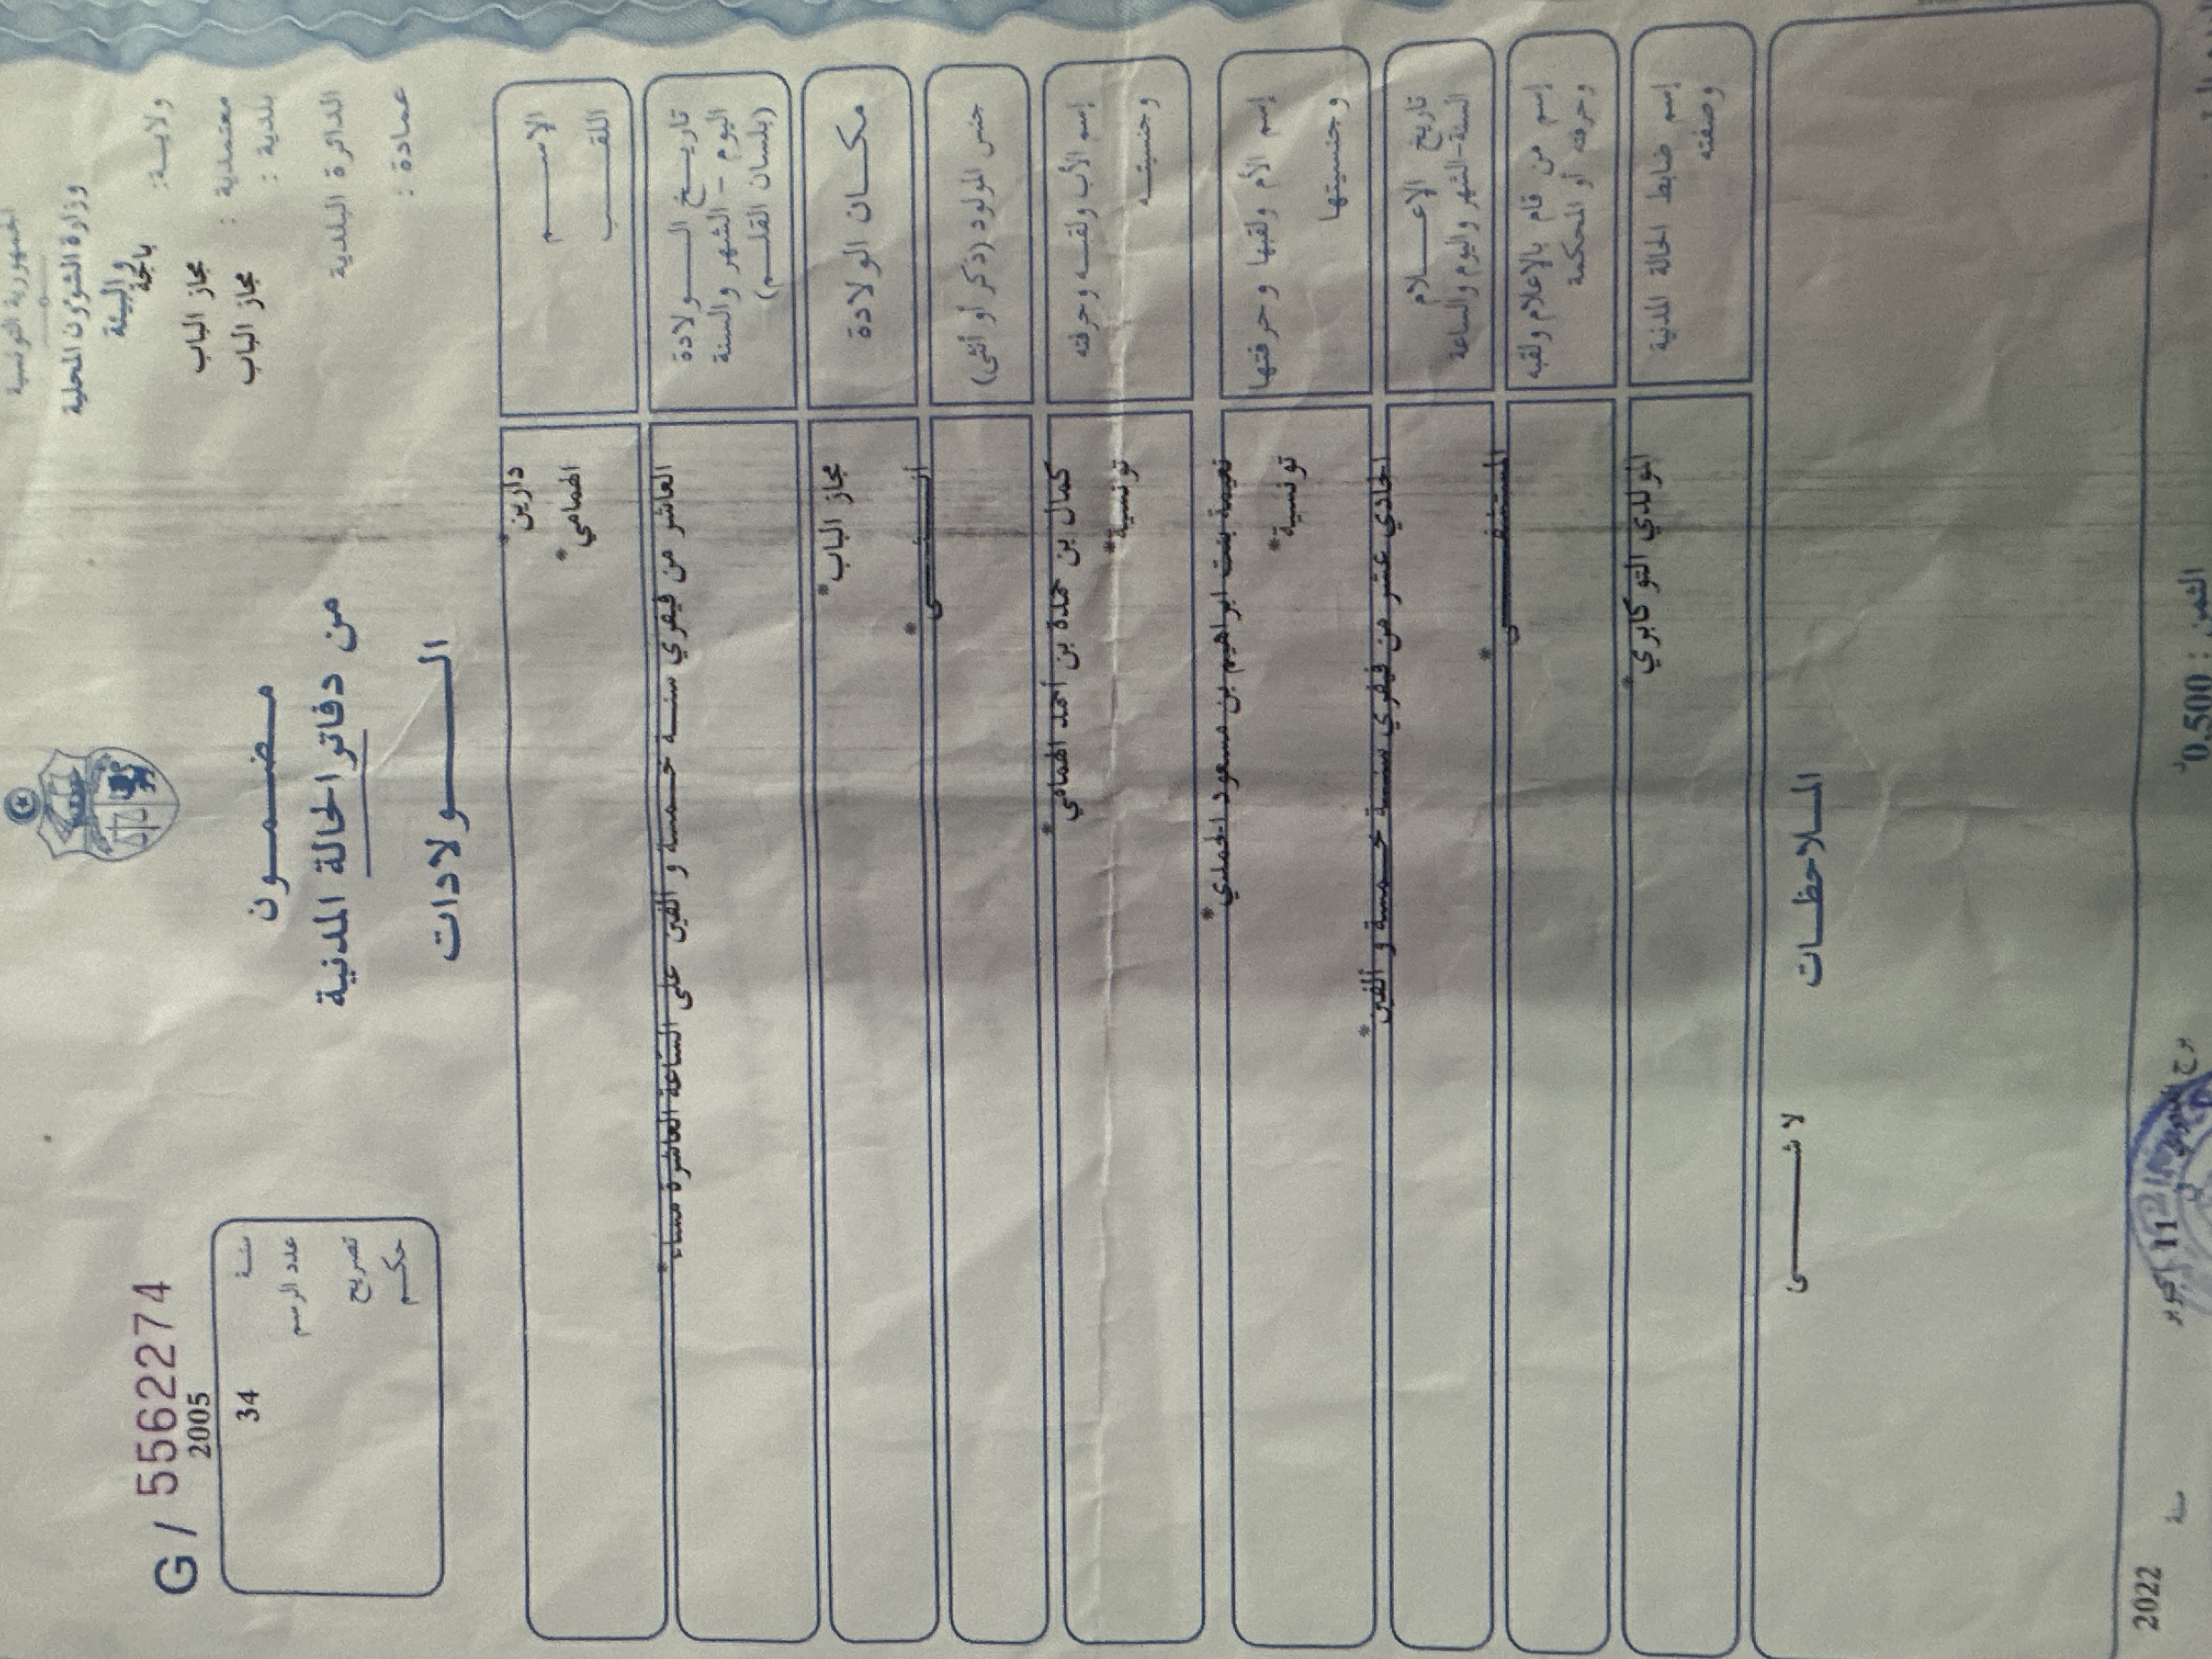 الجمهورية التونسية
وزارة الشؤون المحلية
والبيئة
ولاية: باجة
معتمدية : مجاز الباب
بلدية : مجاز الباب
الدائرة البلدية
عمادة :
مضمون
من دفاتر الحالة المدنية
الولادات
G / 5562274
سنة 2005
عدد الرسم 34
تصريح
حكم
الاسم دارين*
اللقب الهمامي*
تاريخ الولادة
اليوم - الشهر والسنة
(بلسان القلم)
العاشر من فيفري سنة خمسة و ألفين على الساعة العاشرة مساء*
مكان الولادة مجاز الباب*
جنس المولود (ذكر أو أنثى) أنثى*
إسم الأب ولقبه وحرفته كمال بن حمدة بن أحمد الهمامي*
وجنسيته تونسية*
إسم الأم ولقبها وحرفتها نعيمة بنت ابراهيم بن مسعود الحمدي*
وجنسيتها تونسية*
تاريخ الاعلام
السنة-الشهر واليوم والساعة
الحادي عشر من فيفري سنة خمسة و ألفين*
إسم من قام بالاعلام ولقبه
وحرفته أو المحكمة
المستشفى*
إسم ضابط الحالة المدنية
وصفته
المولدي التوكابري*
الملاحظات
لا شىء
11 أكتوبر
سنة 2022
الثمن : 0,500د